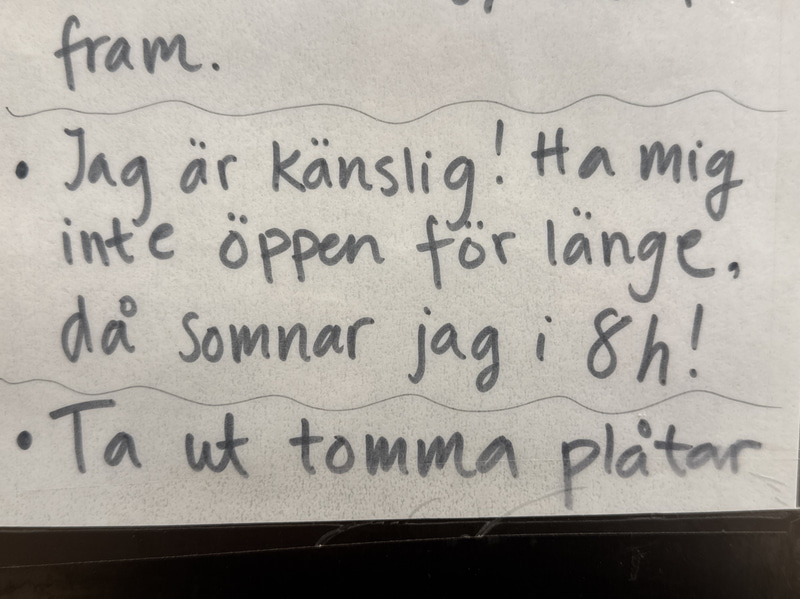 fram.
• Jag är känslig! Ha mig
inte öppen för länge,
då somnar jag i 8h!
• Ta ut tomma plåtar